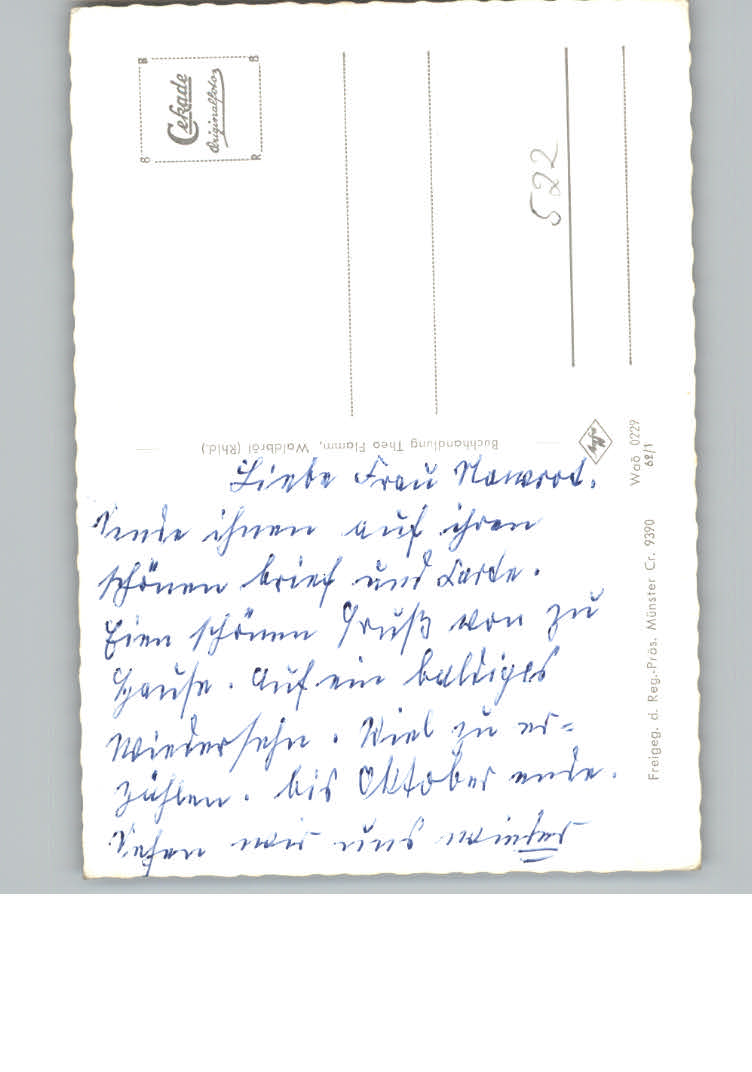 Cekade
Originalfoto
522
Buchhandlung Theo Flamm, Waldbröl (Rhld.)
Agfa
Waö 0229
62/1
Freigeg. d. Reg.-Präs. Münster Cr. 9390
Liebe Frau Nawrot.
Sende ihnen auf ihren
schönen brief und Karte.
Eien schönen Gruß von zu
Hause. Auf ein baldiges
Wiedersehn. Viel zu er=
zählen. bis Oktober ende.
Sehen wir uns wieder